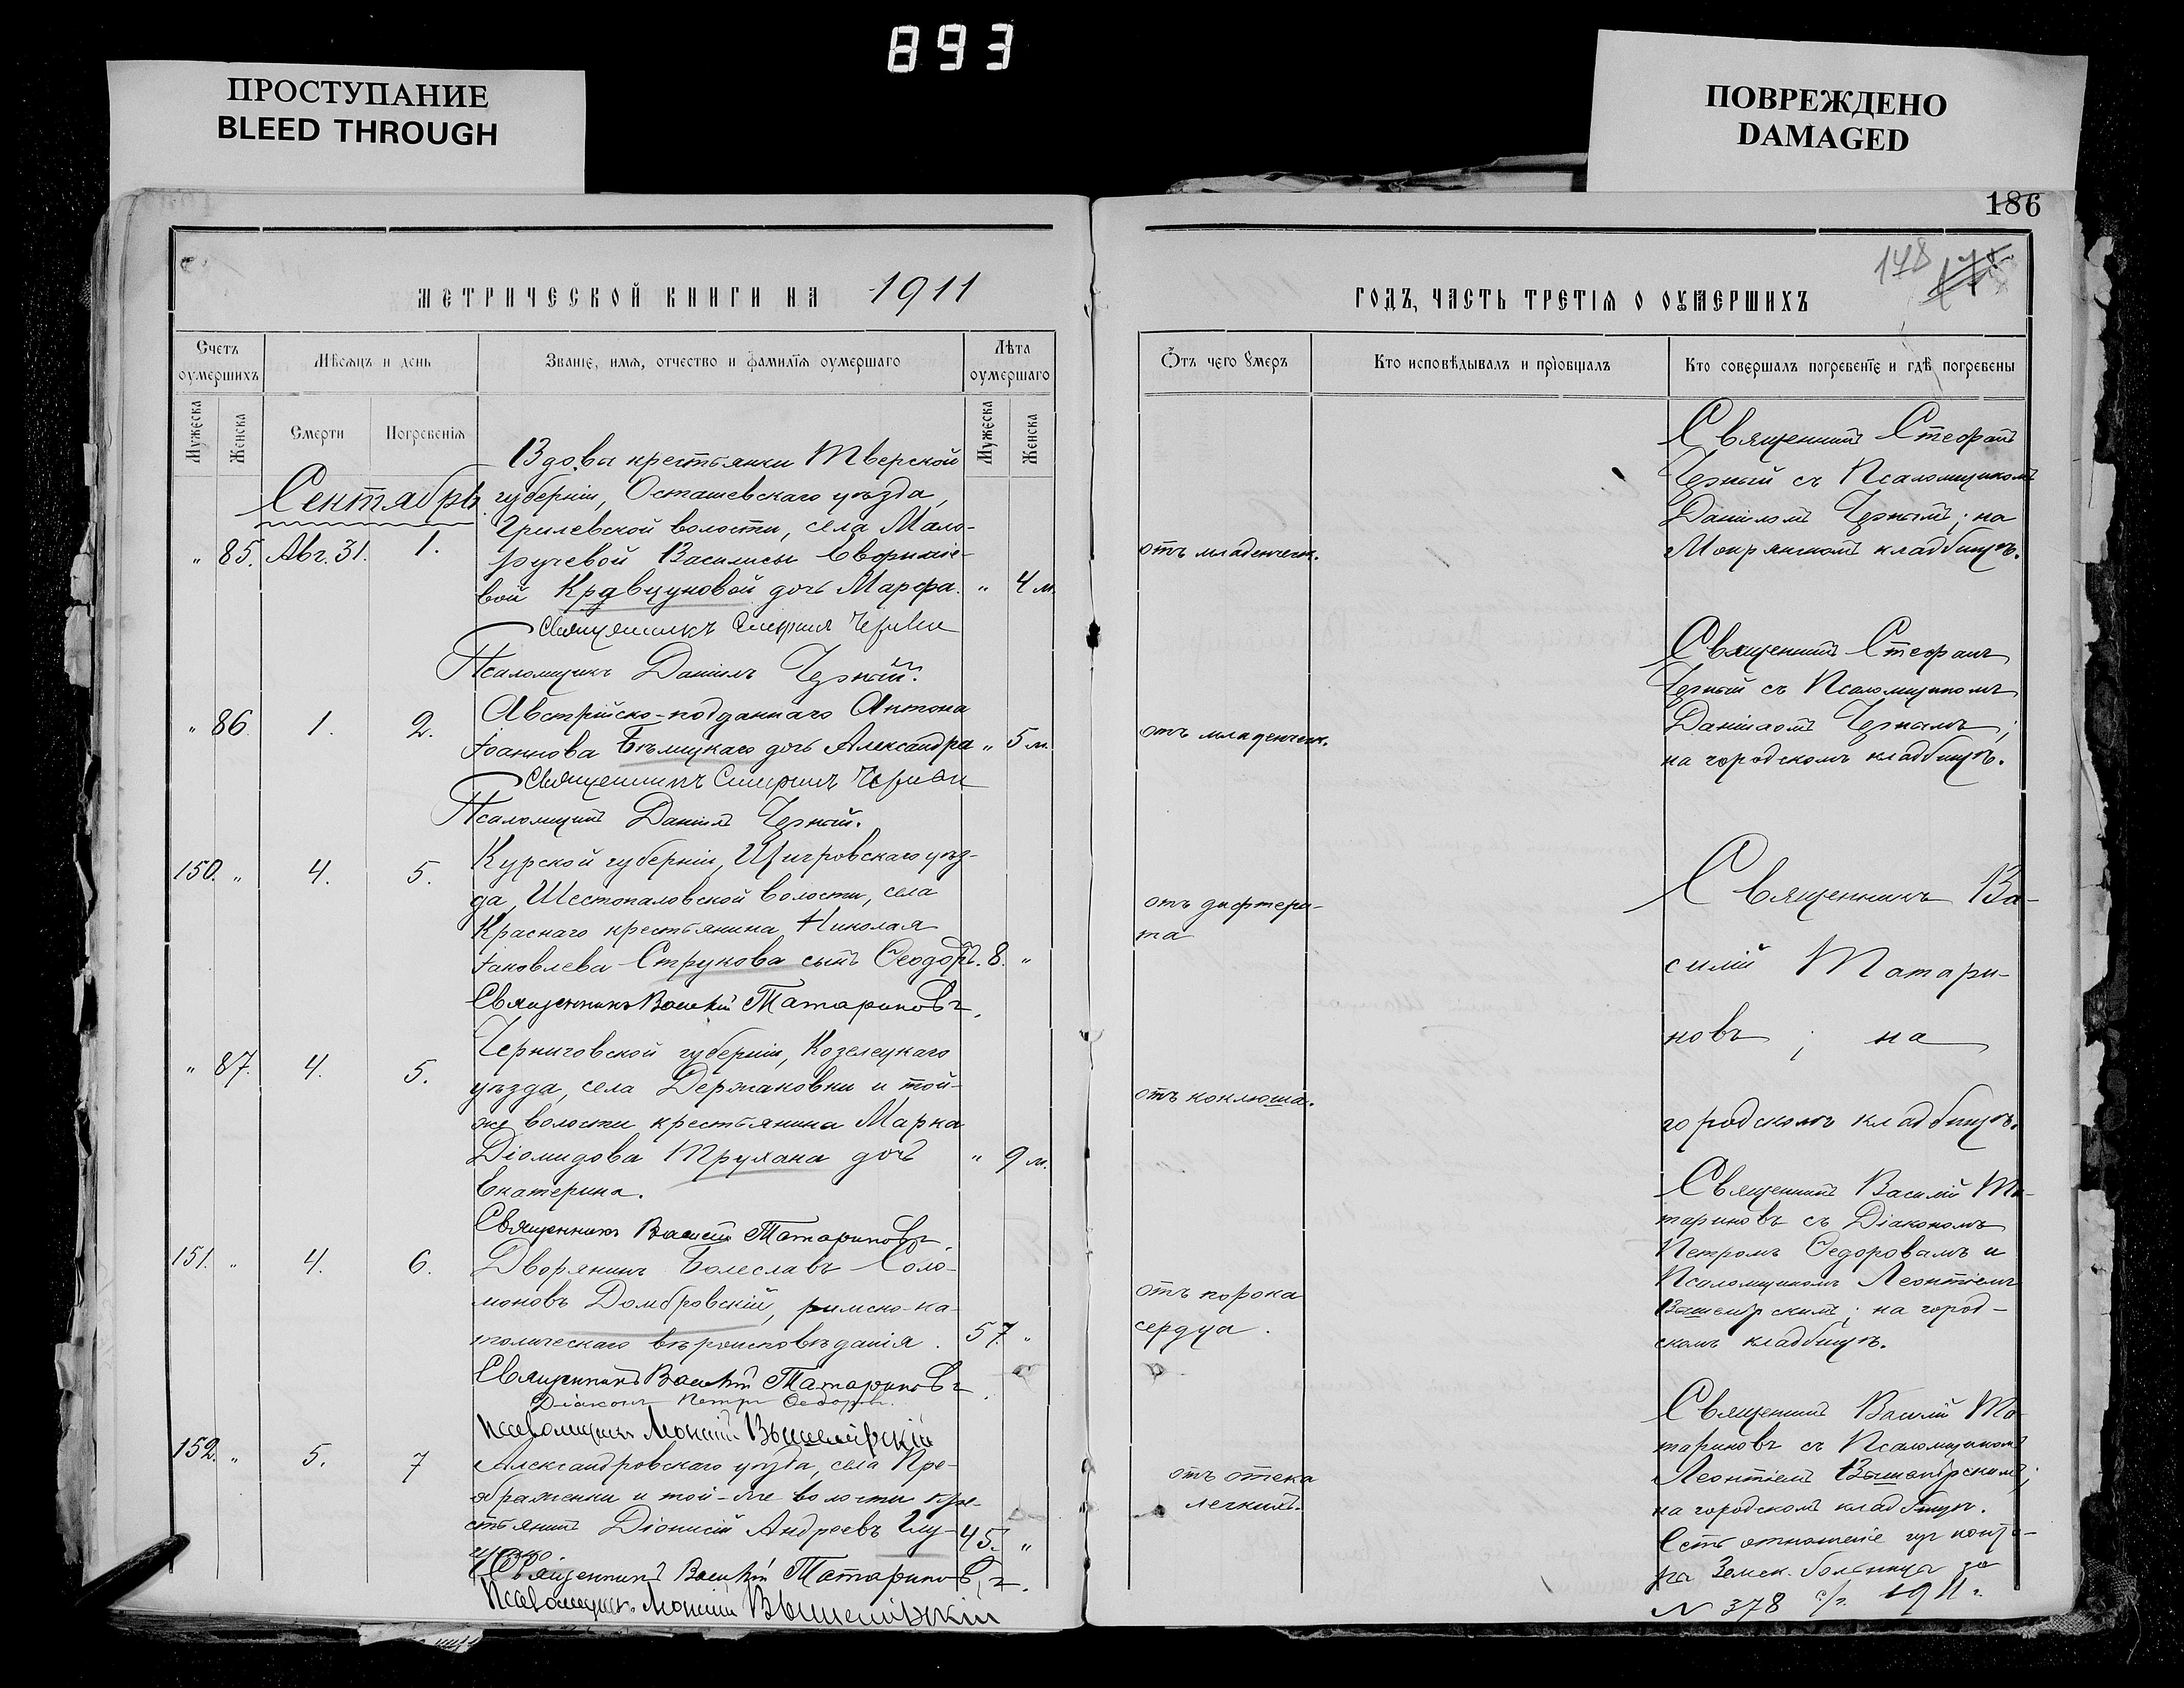 893
ПРОСТУПАНИЕ
BLEED THROUGH
ПОВРЕЖДЕНО
DAMAGED
186
148
МЕТРИЧЕСКОЙ КНИГИ НА 1911
Счетъ оумершихъ
Мѣсяцъ и день
Званіе, имя, отчество и фамилія оумершаго
Лѣта оумершаго
Мужеска
Женска
Смерти
Погребенія
Мужеска
Женска
Сентябрь
Вдовы крестьянки Тверской
губерніи, Осташевскаго уѣзда,
волости, села Мало-
ручевой Василисы
" 85. Авг. 31. 1.
вой Кравцуновой дочь Марфа. " 4 м.
Священникъ Стефанъ Черный
Псаломщикъ Даніилъ Черный.
" 86. 1. 2.
Австрійско-подданнаго Антона
Іоаннова Бѣлицкаго дочь Александра " 5 м.
Священникъ Стефанъ Черный
Псаломщикъ Даніилъ Черный.
150. " 4. 5.
Курской губерніи, Щигровскаго уѣз-
да, Шестопаловской волости, села
Краснаго крестьянина Николая
Іаковлева Струкова сынъ Ѳеодоръ. 8. "
Священникъ Василій Татариновъ.
" 87. 4. 5.
Черниговской губерніи, Козелецкаго
уѣзда, села Держановки и той-
же волости крестьянина Марка
Діомидова Трухана дочь " 9 м.
Екатерина.
Священникъ Василій Татариновъ.
151. " 4. 6.
Дворянинъ Болеславъ Соло-
моновъ Домбровскій, римско-ка-
толическаго вѣроисповѣданія. 57. "
Священникъ Василій Татариновъ.
Діаконъ Петръ Ѳедоровъ.
Псаломщикъ
152. " 5. 7
Александровскаго уѣзда, села Пре-
ображенки и той-же волости кре-
стьянинъ Діонисій Андреевъ 45. "
Священникъ Василій Татариновъ.
Псаломщикъ
ГОДЪ, ЧАСТЬ ТРЕТІЯ О ОУМЕРШИХЪ
Отъ чего умеръ
Кто исповѣдывалъ и пріобщалъ
Кто совершалъ погребеніе и гдѣ погребены
отъ младенческ.
Священникъ Стефанъ
Черный съ Псаломщикомъ
Даніиломъ Чернымъ; на
Мокрянскомъ кладбищѣ.
отъ младенческ.
Священникъ Стефанъ
Черный съ Псаломщикомъ
Даніиломъ Чернымъ;
на городскомъ кладбищѣ.
отъ дифтери-
та
Священникъ Ва-
силій Татари-
новъ; на
городскомъ кладбищѣ.
отъ коклюша.
отъ порока
сердца.
Священникъ Василій Та-
тариновъ съ Діакономъ
Петромъ Ѳедоровымъ и
Псаломщикомъ Леонтіемъ
на город-
скомъ кладбищѣ.
отъ отека
легкихъ.
Священникъ Василій Та-
тариновъ съ Псаломщикомъ
Леонтіемъ
на городскомъ кладбищѣ.
Есть отношеніе
Земск. больницы за
№ 378 1911 г.